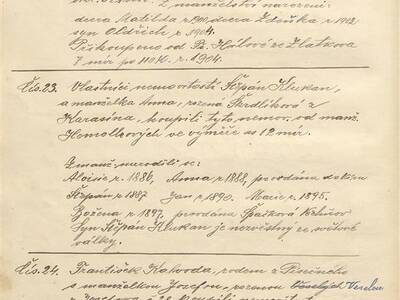 dcera Matilda r. 1900, dcera Zdeňka r. 1902
syn Oldřich r. 1904.
Přikoupeno od Fr. Hálové ze Zlatkova
7 mír po 110 K. r. 1904.
Čís. 23. Vlastníci nemovitosti Štěpán Klukan,
a manželka Anna, rozená Škrdlíková z
Karasína, koupili tyto nemov. od manž.
Homolkových ve výměře as 12 mír.
Z manž. narodili se:
Aloisie r. 1886, Anna r. 1888, provdána do
Štěpán r. 1887 Jan r. 1890. Marie r. 1895.
Božena r. 1897, provdána
Syn Štěpán Klukan je nezvěstný ze světové
války.
Čís. 24. František Kalvoda, rodem z
s manželkou Josefou, rozenou